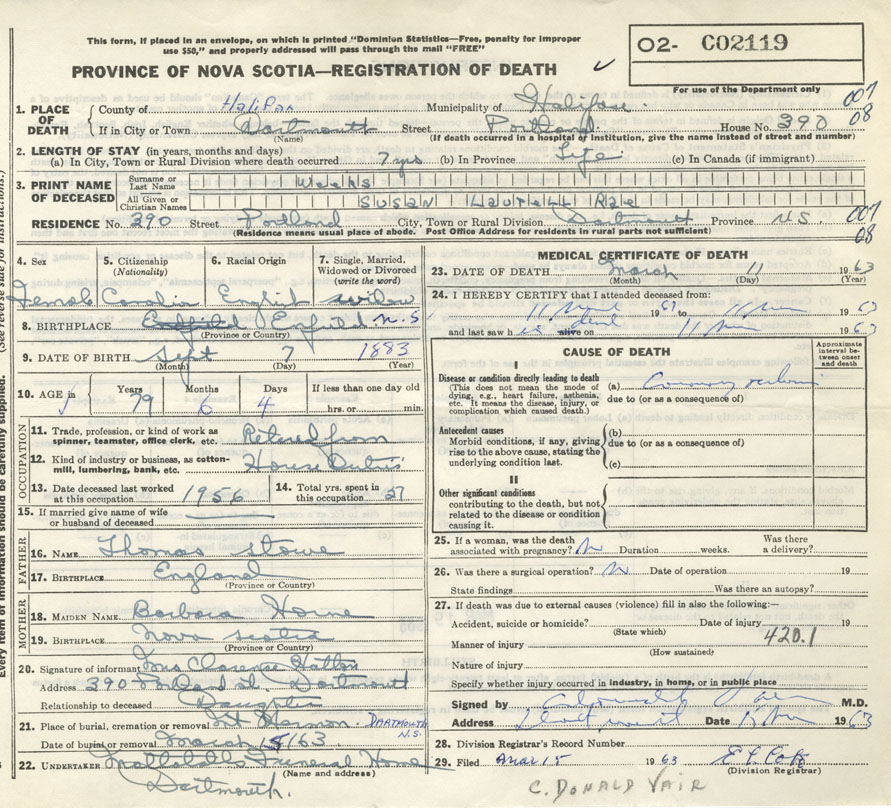 This form, if placed in an envelope, on which is printed "Dominion Statistics—Free, penalty for improper
use $50," and properly addressed will pass through the mail "FREE"
02- C02119
For use of the Department only
PROVINCE OF NOVA SCOTIA—REGISTRATION OF DEATH ✓
1. PLACE OF DEATH
County of Halifax Municipality of Halifax 007
If in City or Town Dartmouth Street Portland House No. 390 08
(Name) (If death occurred in a hospital of institution, give the name instead of street and number)
2. LENGTH OF STAY (in years, months and days)
(a) In City, Town or Rural Division where death occurred 7 yrs (b) In Province Life (c) In Canada (if immigrant)
3. PRINT NAME OF DECEASED
Surname or Last Name Weeks
All Given or Christian Names SUSAN Laurell Rae
RESIDENCE No. 390 Street Portland City, Town or Rural Division Dartmouth Province N.S. 007
(Residence means usual place of abode. Post Office Address for residents in rural parts not sufficient) 08
4. Sex
5. Citizenship (Nationality)
6. Racial Origin
7. Single, Married, Widowed or Divorced (write the word)
Female Canadian English widow
8. BIRTHPLACE Enfield N.S.
(Province or Country)
9. DATE OF BIRTH Sept 7 1883
(Month) (Day) (Year)
10. AGE in Years 79 Months 6 Days 4 If less than one day old hrs. or min.
OCCUPATION
11. Trade, profession, or kind of work as spinner, teamster, office clerk, etc. Retired from
12. Kind of industry or business, as cotton-mill, lumbering, bank, etc. House Duties
13. Date deceased last worked at this occupation 1956
14. Total yrs. spent in this occupation 57
15. If married give name of wife or husband of deceased
FATHER
16. NAME Thomas Stowe
17. BIRTHPLACE England
(Province or Country)
MOTHER
18. MAIDEN NAME Barbara Horne
19. BIRTHPLACE Nova Scotia
(Province or Country)
20. Signature of informant Mrs Clarence
Address 390 Portland St. Dartmouth
Relationship to deceased Daughter
21. Place of burial, cremation or removal Mt Hermon. DARTMOUTH N.S.
Date of burial or removal March /63
22. UNDERTAKER Funeral Home
(Name and address)
Dartmouth.
MEDICAL CERTIFICATE OF DEATH
23. DATE OF DEATH March 11 1963
(Month) (Day) (Year)
24. I HEREBY CERTIFY that I attended deceased from:
11 19 to 11 1963
and last saw h alive on 11 1963
CAUSE OF DEATH
Approximate interval between onset and death
I
Disease or condition directly leading to death
(This does not mean the mode of dying, e.g., heart failure, asthenia, etc. It means the disease, injury, or complication which caused death.)
(a) Coronary
due to (or as a consequence of)
Antecedent causes
Morbid conditions, if any, giving rise to the above cause, stating the underlying condition last.
(b)
due to (or as a consequence of)
(c)
II
Other significant conditions
contributing to the death, but not related to the disease or condition causing it.
25. If a woman, was the death associated with pregnancy? Duration weeks. Was there a delivery?
26. Was there a surgical operation? Date of operation 19
State findings Was there an autopsy?
27. If death was due to external causes (violence) fill in also the following:—
Accident, suicide or homicide? Date of injury 19
(State which)
Manner of injury 420.1
(How sustained)
Nature of injury
Specify whether injury occurred in industry, in home, or in public place
Signed by M.D.
Address Date 1963
28. Division Registrar's Record Number
29. Filed Mar 15 1963
(Division Registrar)
C. DONALD VAIR
(See reverse side for instructions.)
Every item of information should be carefully supplied.